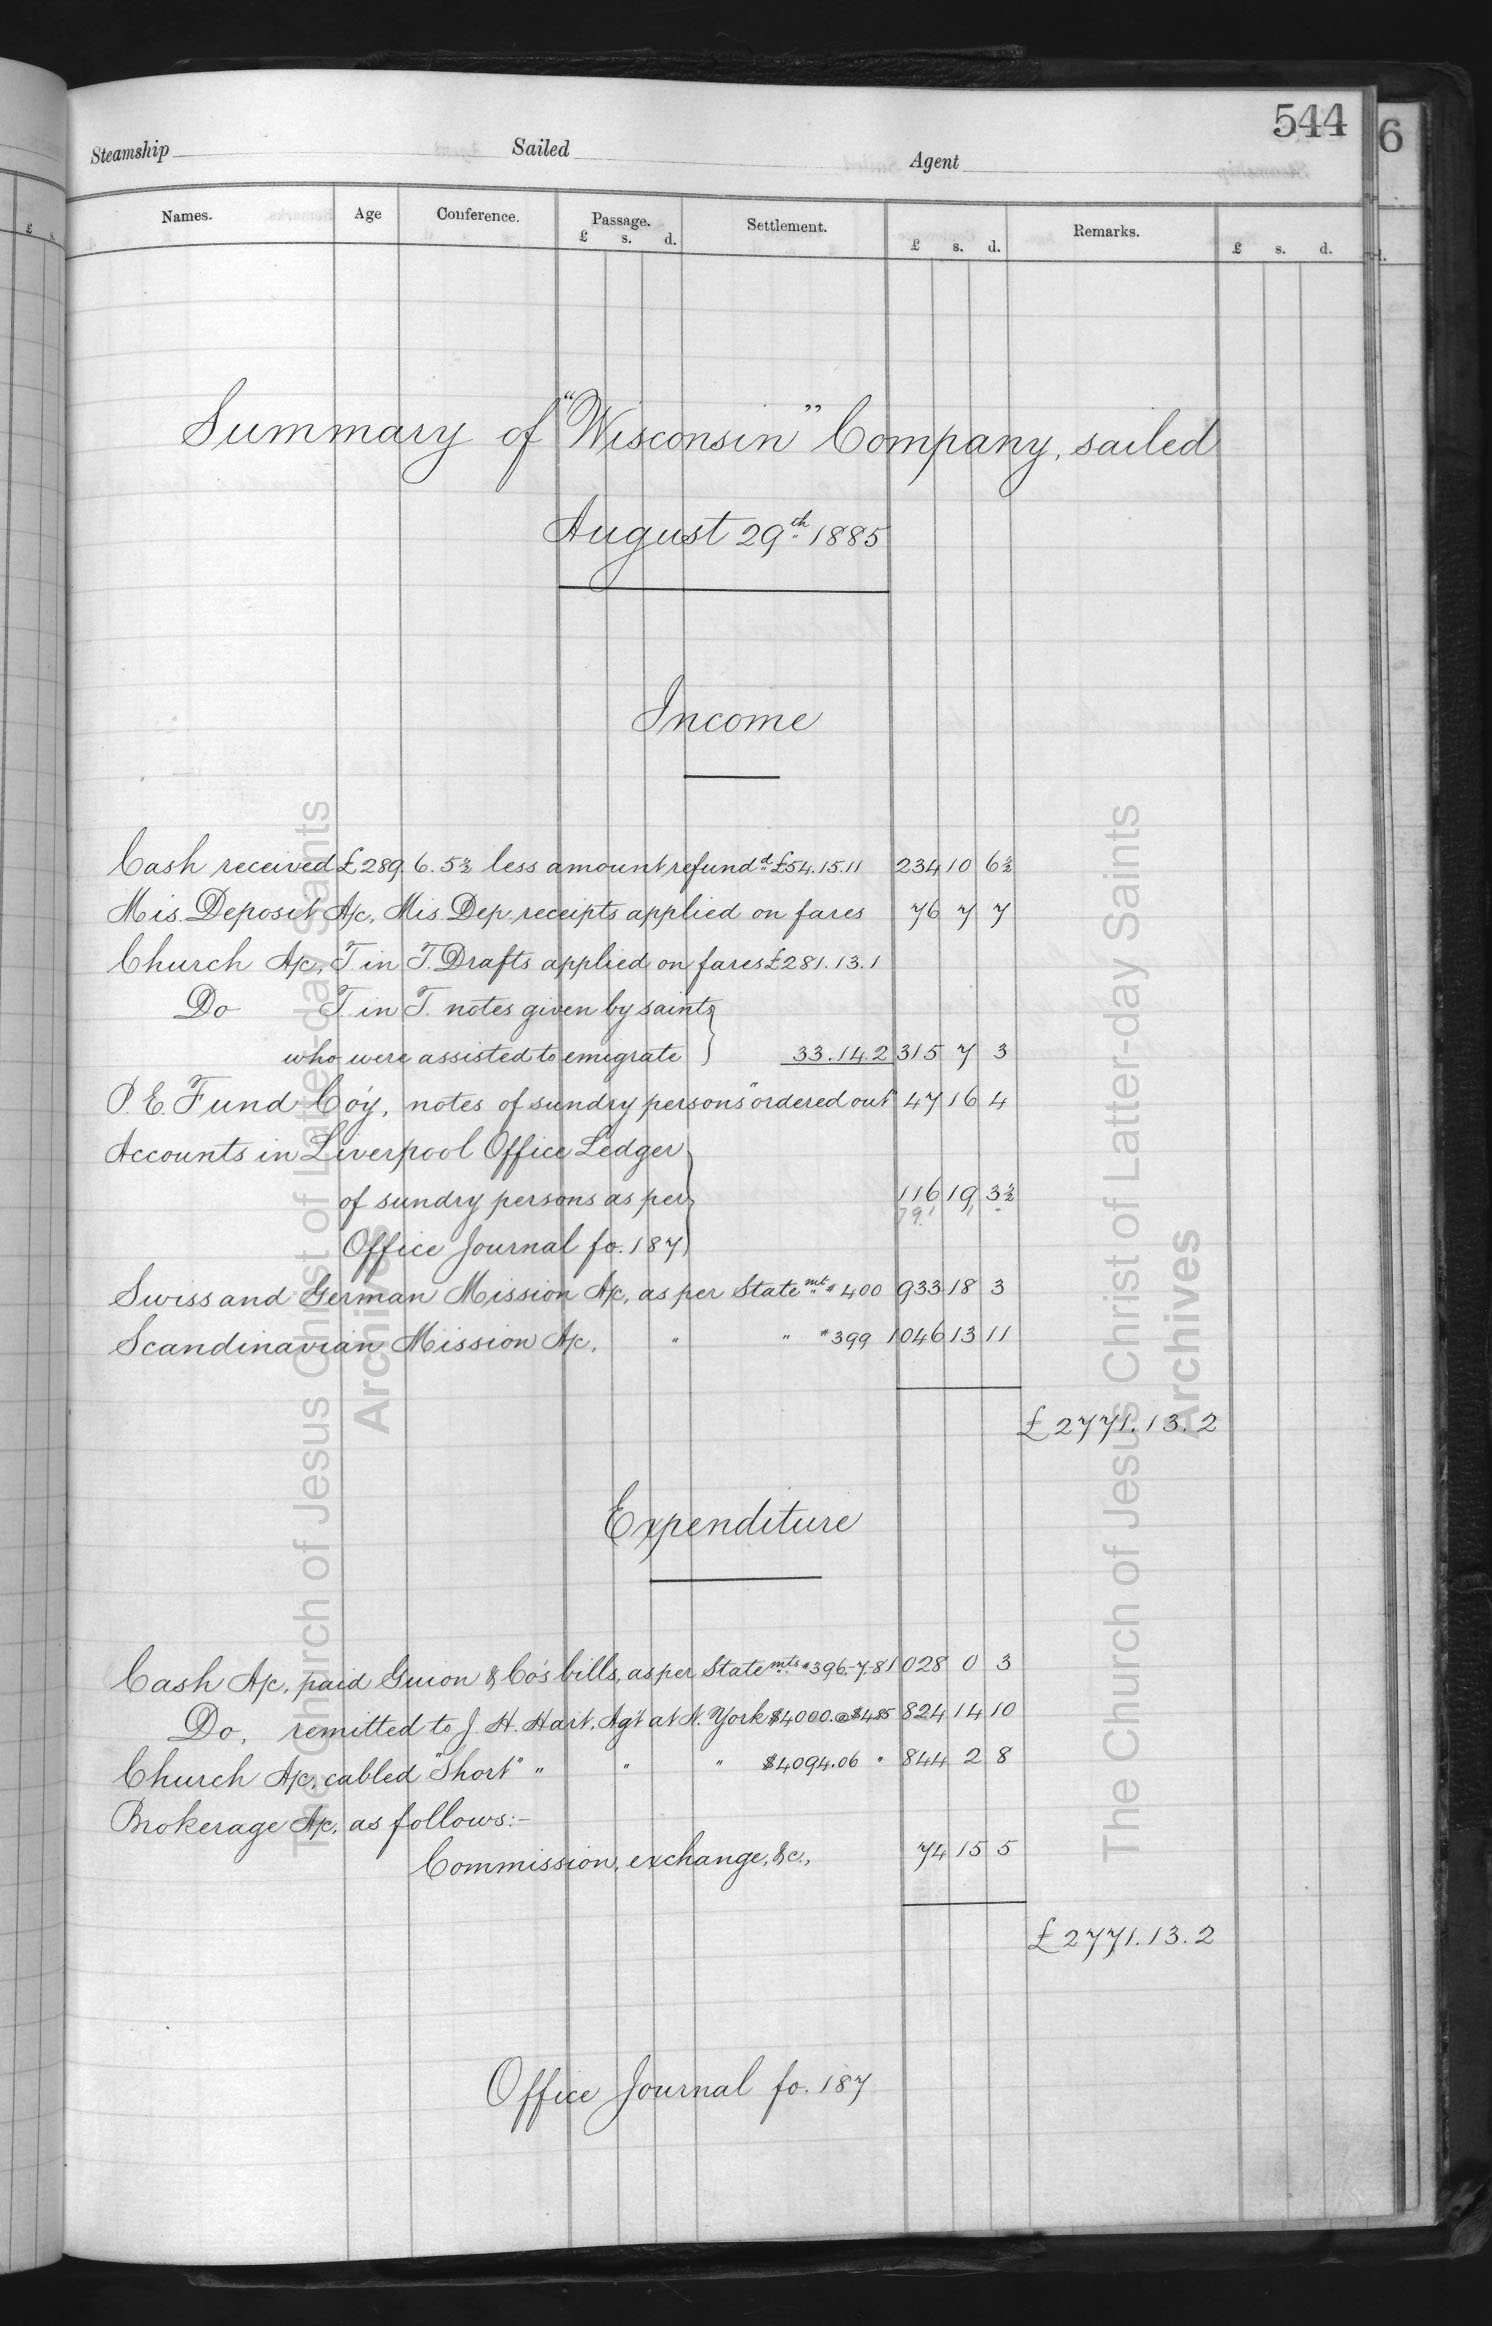 544
6
Steamship Sailed Agent
Names. Age Conference. Passage. Settlement. Remarks.
£ s. d. £ s. d. £ s. d.
Summary of "Wisconsin" Company, sailed
August 29th 1885
Income
Cash received £289.6.5½ less amount refundd £54.15.11 234 10 6½
Mis. Deposit A/c, Mis. Dep. receipts applied on fares 76 7 7
Church A/c, T. in T. Drafts applied on fares £281.13.1
Do T. in T. notes given by saints
who were assisted to emigrate 33.14.2 315 7 3
P. E. Fund Co'y, notes of sundry persons "ordered out" 47 16 4
Accounts in Liverpool Office Ledger
of sundry persons as per 116 19 3½
Office Journal fo. 187
Swiss and German Mission A/c, as per Statemt # 400 933 18 3
Scandinavian Mission A/c, " " # 399 1046 13 11
£2771.13.2
Expenditure
Cash A/c, paid Guion & Co's bills, as per Statemts #396-7-8 1028 0 3
Do, remitted to J. H. Hart, Ag't at N. York $4000. @ $4.85 824 14 10
Church A/c, cabled "Short" " " " $4094.06 " 844 2 8
Brokerage A/c, as follows:-
Commission, exchange, &c., 74 15 5
£2771.13.2
Office Journal fo. 187
The Church of Jesus Christ of Latter-day Saints
Archives
The Church of Jesus Christ of Latter-day Saints
Archives